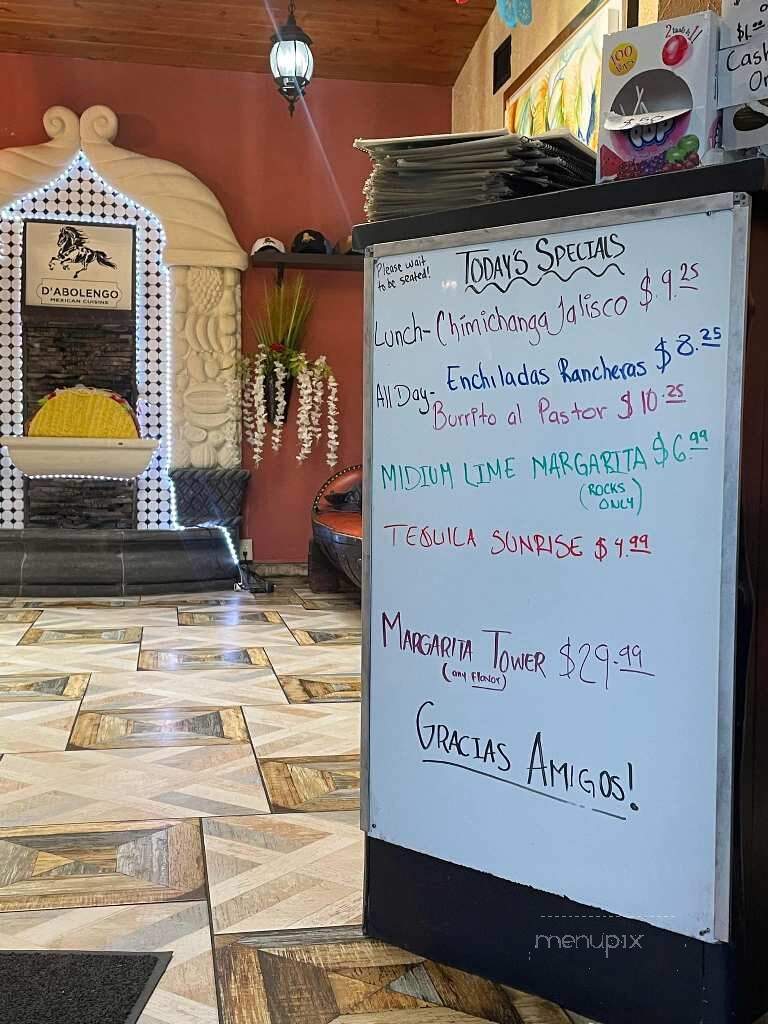 100
POPS
$.50
POP
$1.00
Cash
On
D'ABOLENGO
MEXICAN CUISINE
Please wait
to be seated!
TODAY'S SPECIALS
Lunch- Chimichanga Jalisco $9.25
All Day- Enchiladas Rancheras $8.25
Burrito al Pastor $10.25
MIDIUM LIME MARGARITA $6.99
(ROCKS
ONLY)
TEQUILA SUNRISE $4.99
MARGARITA TOWER $29.99
(any Flavor)
GRACIAS AMIGOS!
menupix